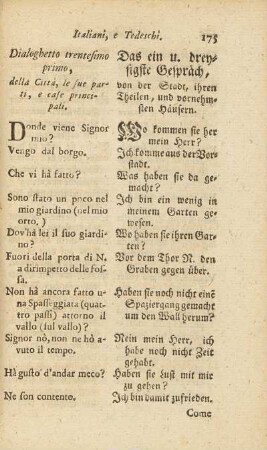 Italiani, e Tedeschi. 175
Dialoghetto trentesimo
primo,
della Città, le sue par-
ti, e case princi-
pali.
Donde viene Signor
mio?
Vengo dal borgo.
Che vi hà fatto?
Sono stato un poco nel
mio giardino (nel mio
orto,)
Dov'hà lei il suo giardi-
no?
Fuori della porta di N.
a dirimpetto delle fos-
sa.
Non hà ancora fatto u-
na Spasseggiata (quat-
tro passi) attorno il
vallo (sul vallo)?
Signor nò, non ne hò a-
vuto il tempo.
Hà gusto d'andar meco?
Ne son contento.
Das ein u. drey-
sigste Gespräch,
von der Stadt, ihren
Theilen, und vornehm-
sten Häusern.
Wo kommen sie her
mein Herr?
Ich komme aus der Vor-
stadt.
Was haben sie da ge-
macht?
Ich bin ein wenig in
meinem Garten ge-
wesen.
Wo haben sie ihren Gar-
ten?
Vor dem Thor N. den
Graben gegen über.
Haben sie noch nicht einē
Spaziergang gemacht
um den Wall herum?
Nein mein Herr, ich
habe noch nicht Zeit
gehabt.
Haben sie Lust mit mir
zu gehen?
Ich bin damit zufrieden.
Come